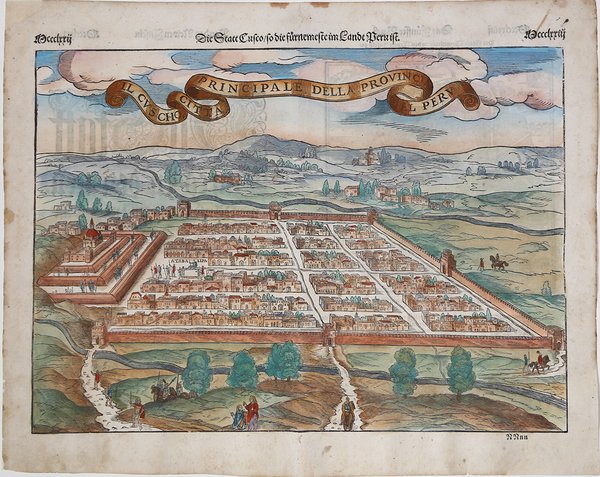 Mccclxxij
Die Statt Cusco/so die fürnemeste im Lande Peru ist.
Mccclxxiij
IL CVSCHO CITTA PRINCIPALE DELLA PROVINCI DEL PERV
NNnn